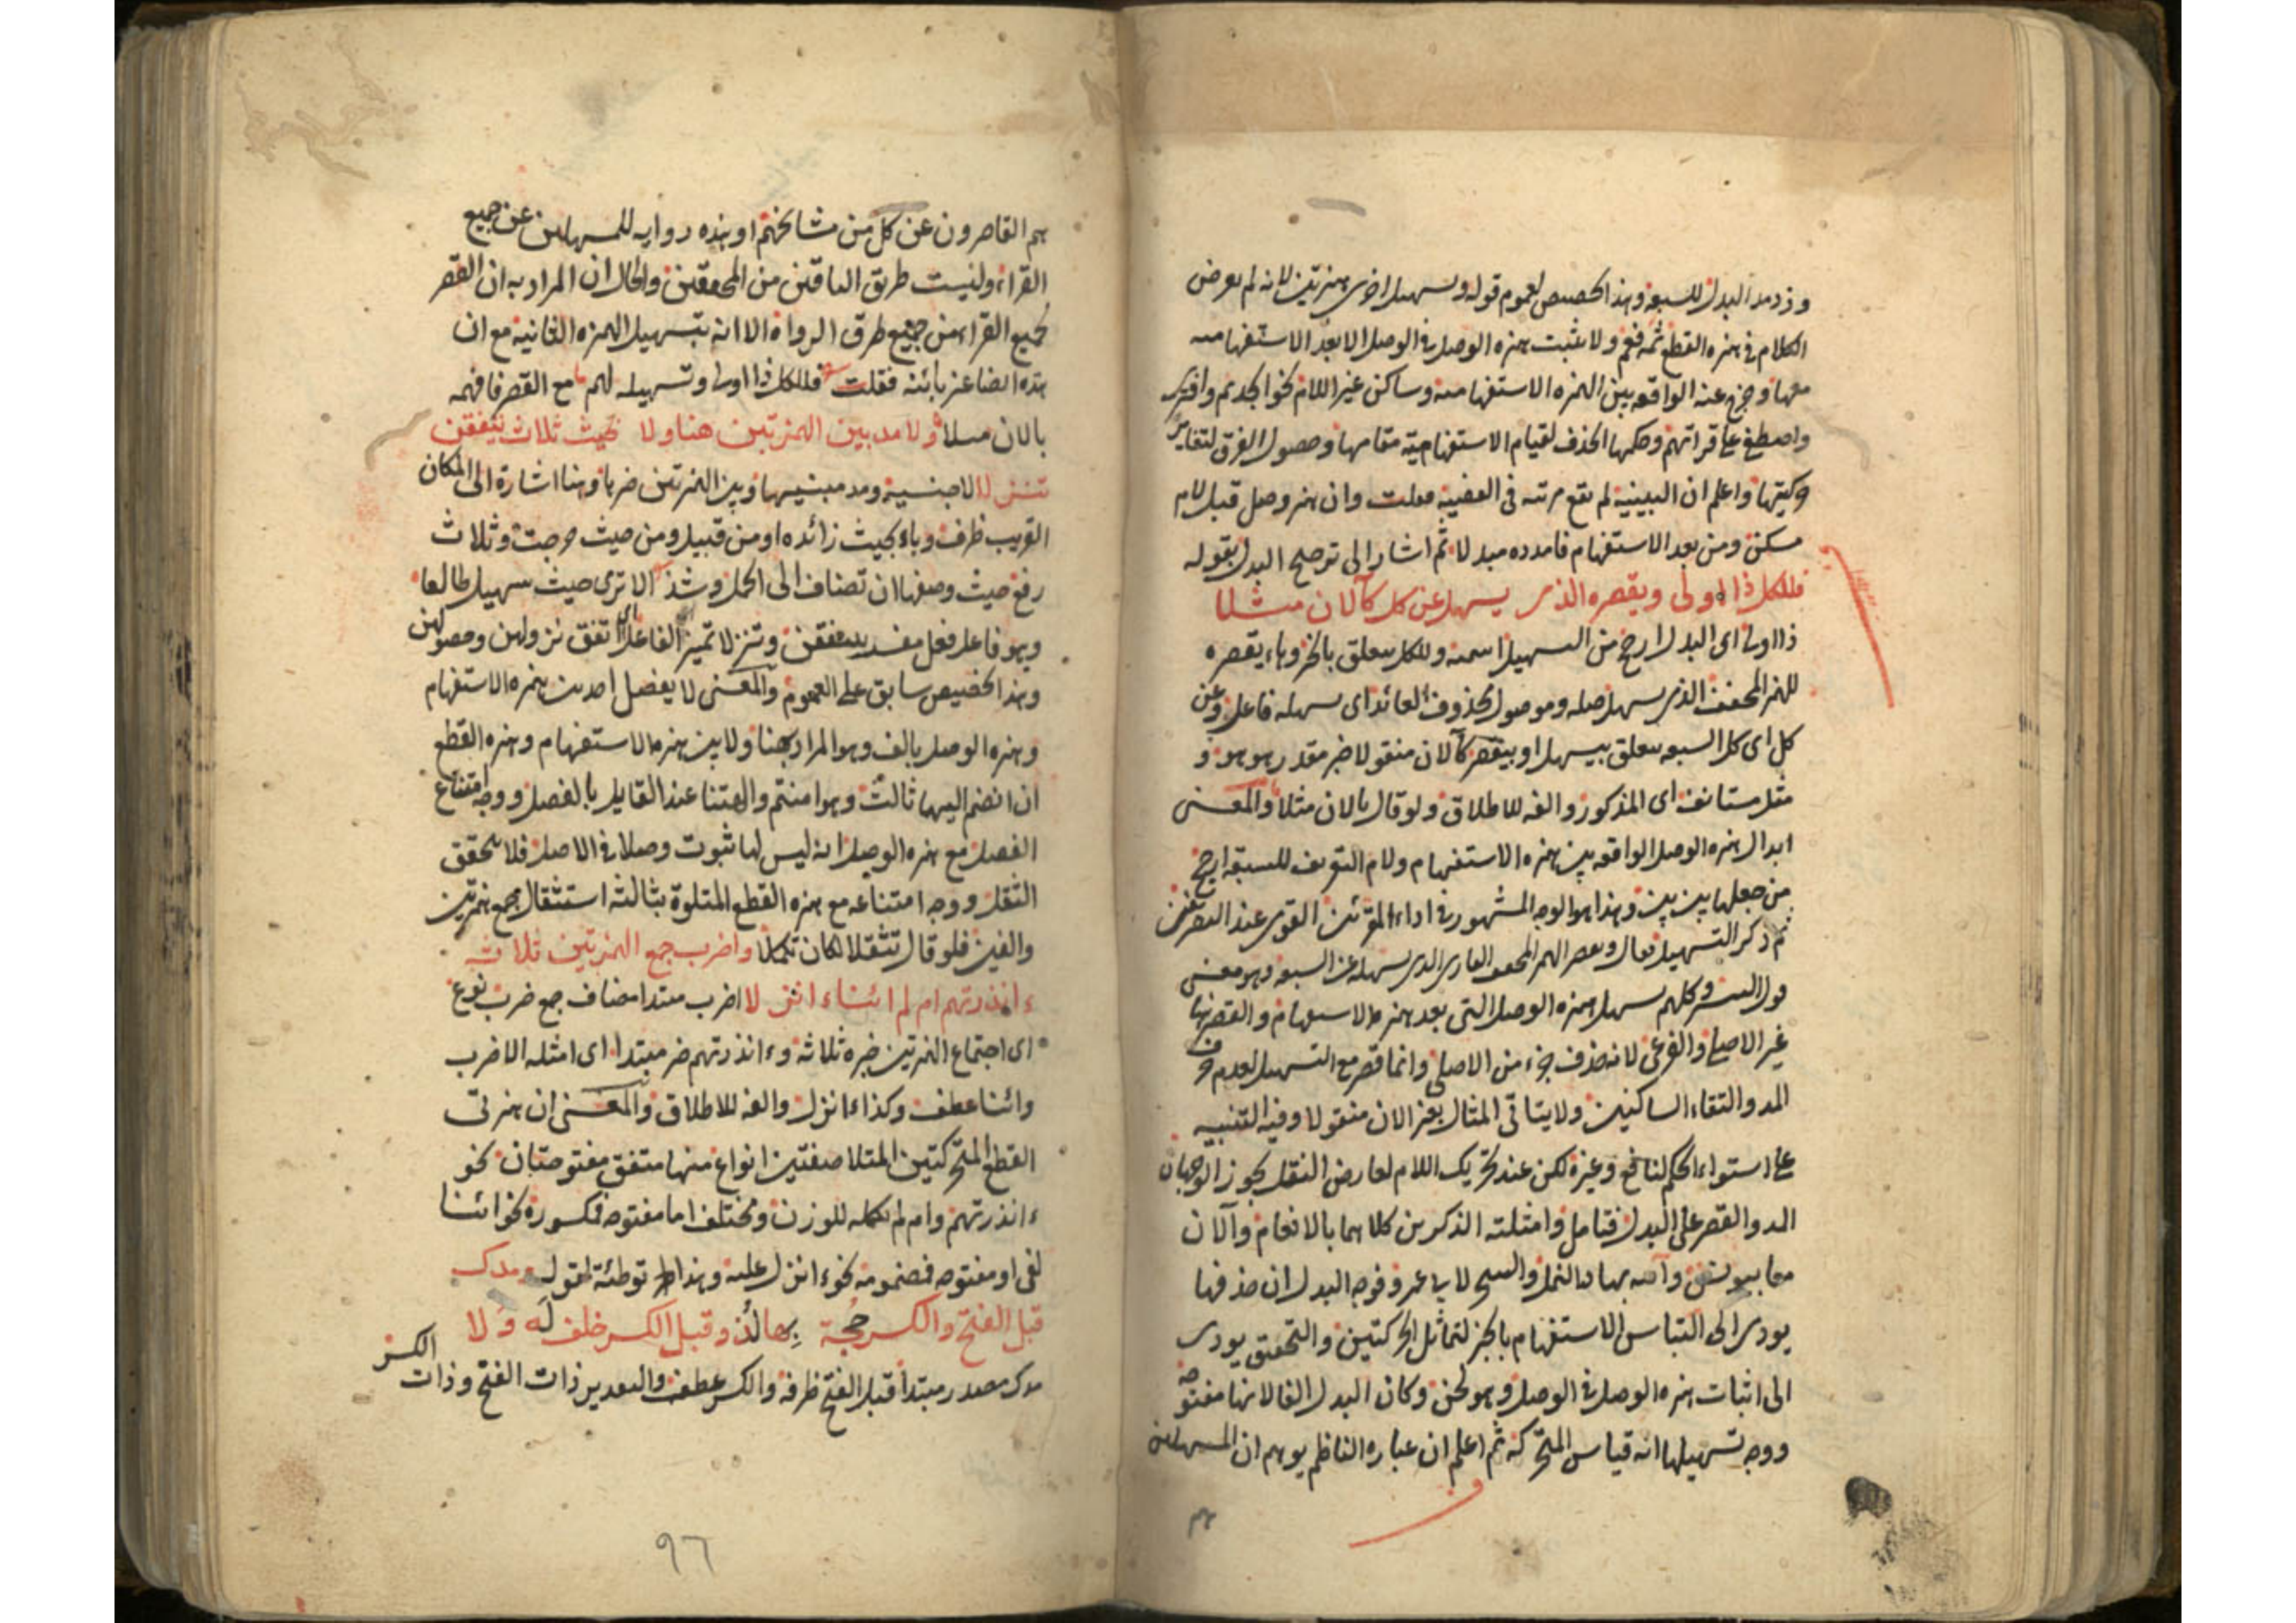 وزد مد البدل للسبعة وهذا تخصيص لعموم قوله وتسهيل اخرى همزتين لانه لم يعرض
الكلام في همزة القطع ثمه فعم ولا يثبت همزة الوصل في الوصل الا بعد الاستفهامية
معها وخرج عنه الواقعة بين الهمزة الاستفهامية وساكن غير اللام نحو اتخذتم وافترى
واصطفى على قراتهم وحكمها الحذف لقيام الاستفهامية مقامها وحصول الفرق لتغاير
حركتيها واعلم ان البينية لم تقع مرتبة في فقلت وان همز وصل قبل لام
مسكن ومن بعد الاستفهام فامدده مبدلا ثم اشار الى ترجيح البدل بقوله
فللكل ذا اولى ويقصره الذى يسهل عن كل كآلان مثلا
ذا اولى اى البدل ارجح من التسهيل اسمية وللكل متعلق بالخبر وهاء يقصره
للهمز المخفف الذى يسهل صله وموصول محذوف العائد اى يسهله فاعل وعن
كل اى كل السبعة متعلق بيسهل او بيقصر كآلان منقولا خبر مقدر هو هو و
مثل مستانف اى المذكور والفه للاطلاق ولو قال بالان مثلا والمعنى
ابدال همزة الوصل الواقعة بين همزة الاستفهام ولام التعريف للسبعة ارجح
من جعلها بين بين وهذا هو الوجه المشهور في اداء المقرئين القوى عند التصريفيين
ثم ذكر التسهيل فقال ويقصر الهمز المخفف القارى الذى يسهله عن السبعة وهو معنى
قول التيسير وكلهم يسهل همزة الوصل التى بعد همزة الاستفهام والقصر هنا
غير الاصلى والفرعى لانه حذف جزء من الاصلى وانما قصر مع التسهيل لعدم حرف
المد والتقاء الساكنين ولا يتاتى المثال بغير الان منقولا وفيه التنبيه
على استواء الحكم لنافع وغيره لكن عند تحريك اللام لعارض النقل يجوز الوجهان
المد والقصر على البدل فتامل وامثلته الذكرين كلاهما بالانعام وآلان
معا بيونس وآلله بها بالنمل والسحر لابى عمرو فوجه البدل ان حذفها
يودى الى التباس الاستفهام بالخبر لتماثل الحركتين والتحقيق يودى
الى اثبات همزة الوصل في الوصل وهو لحن وكان البدل الفا لانها مفتوحة
ووجه تسهيلها انه قياس المتحركة ثم اعلم ان عبارة الناظم يوهم ان المسهلين
هم القاصرون عن كل من مشائخهم او هذه رواية للمسهلين عن جميع
القراء وليست طريق الباقين من المحققين والحال ان المراد به ان القصر
لجميع القراء من جميع طرق الرواة الا انه بتسهيل الهمزة الثانية مع ان
هذه ايضا عبر بائنه فقلت فللكل ذا اولى وتسهيله لهم مع القصر فافهمه
بالان مسلا ولا مد بين الهمزتين هنا ولا بحيث ثلاث يتفقن
تنزلا لا جنسية ومد مبنيها وبين الهمزتين خبرها وهنا اشارة الى المكان
القريب ظرف وباء بحيث زائدة او من قبيل ومن حيث خرجت وثلاث
رفع حيث وصفها ان تضاف الى الجمل وشذ الا ترى حيث سهيل طالعا
وهو فاعل فعل مفسره يتفقن وتنزلا تميز الفاعل اى اتفق نزولهن وحصولهن
وهذا تخصيص سابق على العموم والمعنى لا يفصل احد بين همزة الاستفهام
وهمزة الوصل بالف وهو المراد بهنا ولا بين همزة الاستفهام وهمزة القطع
ان انضم اليها ثالث وهو امنتم والهتنا عند القايل بالفصل ووجه امتناع
الفصل مع همزة الوصل انه ليس لها ثبوت وصلا في الاصل فلا يتحقق
الثقل ووجه امتناعه مع همزة القطع المتلوة بثالثة استثقال جمع همزتين
والفين فلو قال تثقلا لكان تكملا واضرب جمع الهمزتين ثلاثة
ءانذرتهم ام لم ائنا ءانزلا اضرب مبتدا مضاف جمع ضرب نوع
اى اجتماع الهمزتين خبره ثلاثة وءانذرتهم خبر مبتدا اى امثله الاضرب
وائنا عطف وكذا ءانزل والفه للاطلاق والمعنى ان همزتى
القطع المتحركتين المتلاصقتين انواع منها متفق مفتوحتان نحو
ءانذرتهم وام لم تكمله للوزن ومختلف اما مفتوحة فمكسورة نحو ائنا
لفى او مفتوحة فمضمومة نحو ءانزل عليه وهذا توطئة لقوله ومدك
قبل الفتح والكسر حجة بها لذ وقبل الكسر خلف له ولا
مدك مصدر مبتدا قبل الفتح ظرفه والكسر عطف والتقدير ذات الفتح وذات الكسر
٩٦